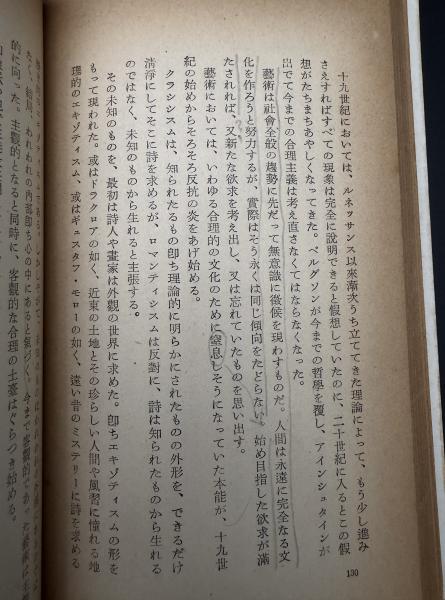 十九世紀においては、ルネッサンス以來漸次うち立ててきた理論によって、もう少し進み
さえすればすべての現象は完全に説明できると假想していたのに、二十世紀に入るとこの假
想がたちまちあやしくなってきた。ベルグソンが今までの哲學を覆し、アインシュタインが
出でて今までの合理主義は考え直さなくてはならなくなった。
藝術は社會全般の趨勢に先だって無意識に徴候を現わすものだ。人間は永遠に完全なる文
化を作ろうと努力するが、實際はそう永くは同じ傾向をたどらない。始め目指した欲求が滿
たされれば、又新たな欲求を考え出し、又は忘れていたものを思い出す。
藝術においては、いわゆる合理的の文化のために窒息しそうになっていた本能が、十九世
紀の始めからそろそろ反抗の炎をあげ始める。
クラシシスムは、知られたるもの卽ち理論的に明らかにされたものの外形を、できるだけ
淸淨にしてそこに詩を求めるが、ロマンティシスムは反對に、詩は知られたものから生れる
のではなく、未知のものから生れると主張する。
その未知のものを、最初は詩人や畫家は外觀の世界に求めた。卽ちエキゾティスムの形を
もって現われた。或はドラクロアの如く、近東の土地とその珍らしい人間や風習に憧れる地
理的のエキゾティスム、或はギュスタフ・モローの如く、遠い昔のミステリーに詩を求める
130
われわれの內部卽ち心の中にあると氣づく。今まで客觀的であった
的に向った。主觀的となると同時に、客觀的な合理の土臺はぐらつき始める。